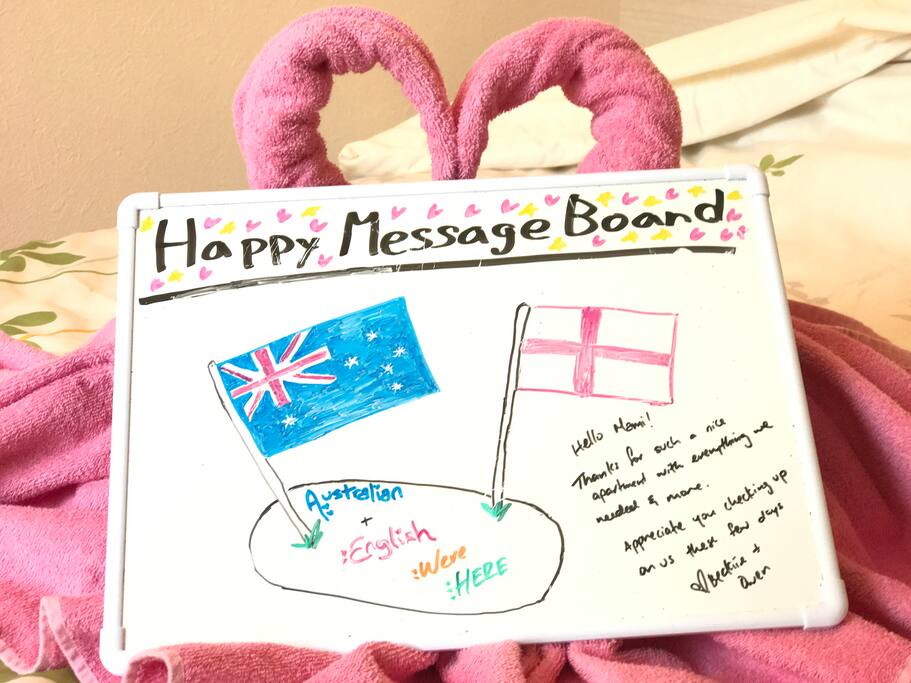 Happy Message Board
Australian
+
English
Were
HERE
Hello Mami!
Thanks for such a nice
apartment with everything we
needed & more.
Appreciate you checking up
on us these few days
Beckie +
Owen